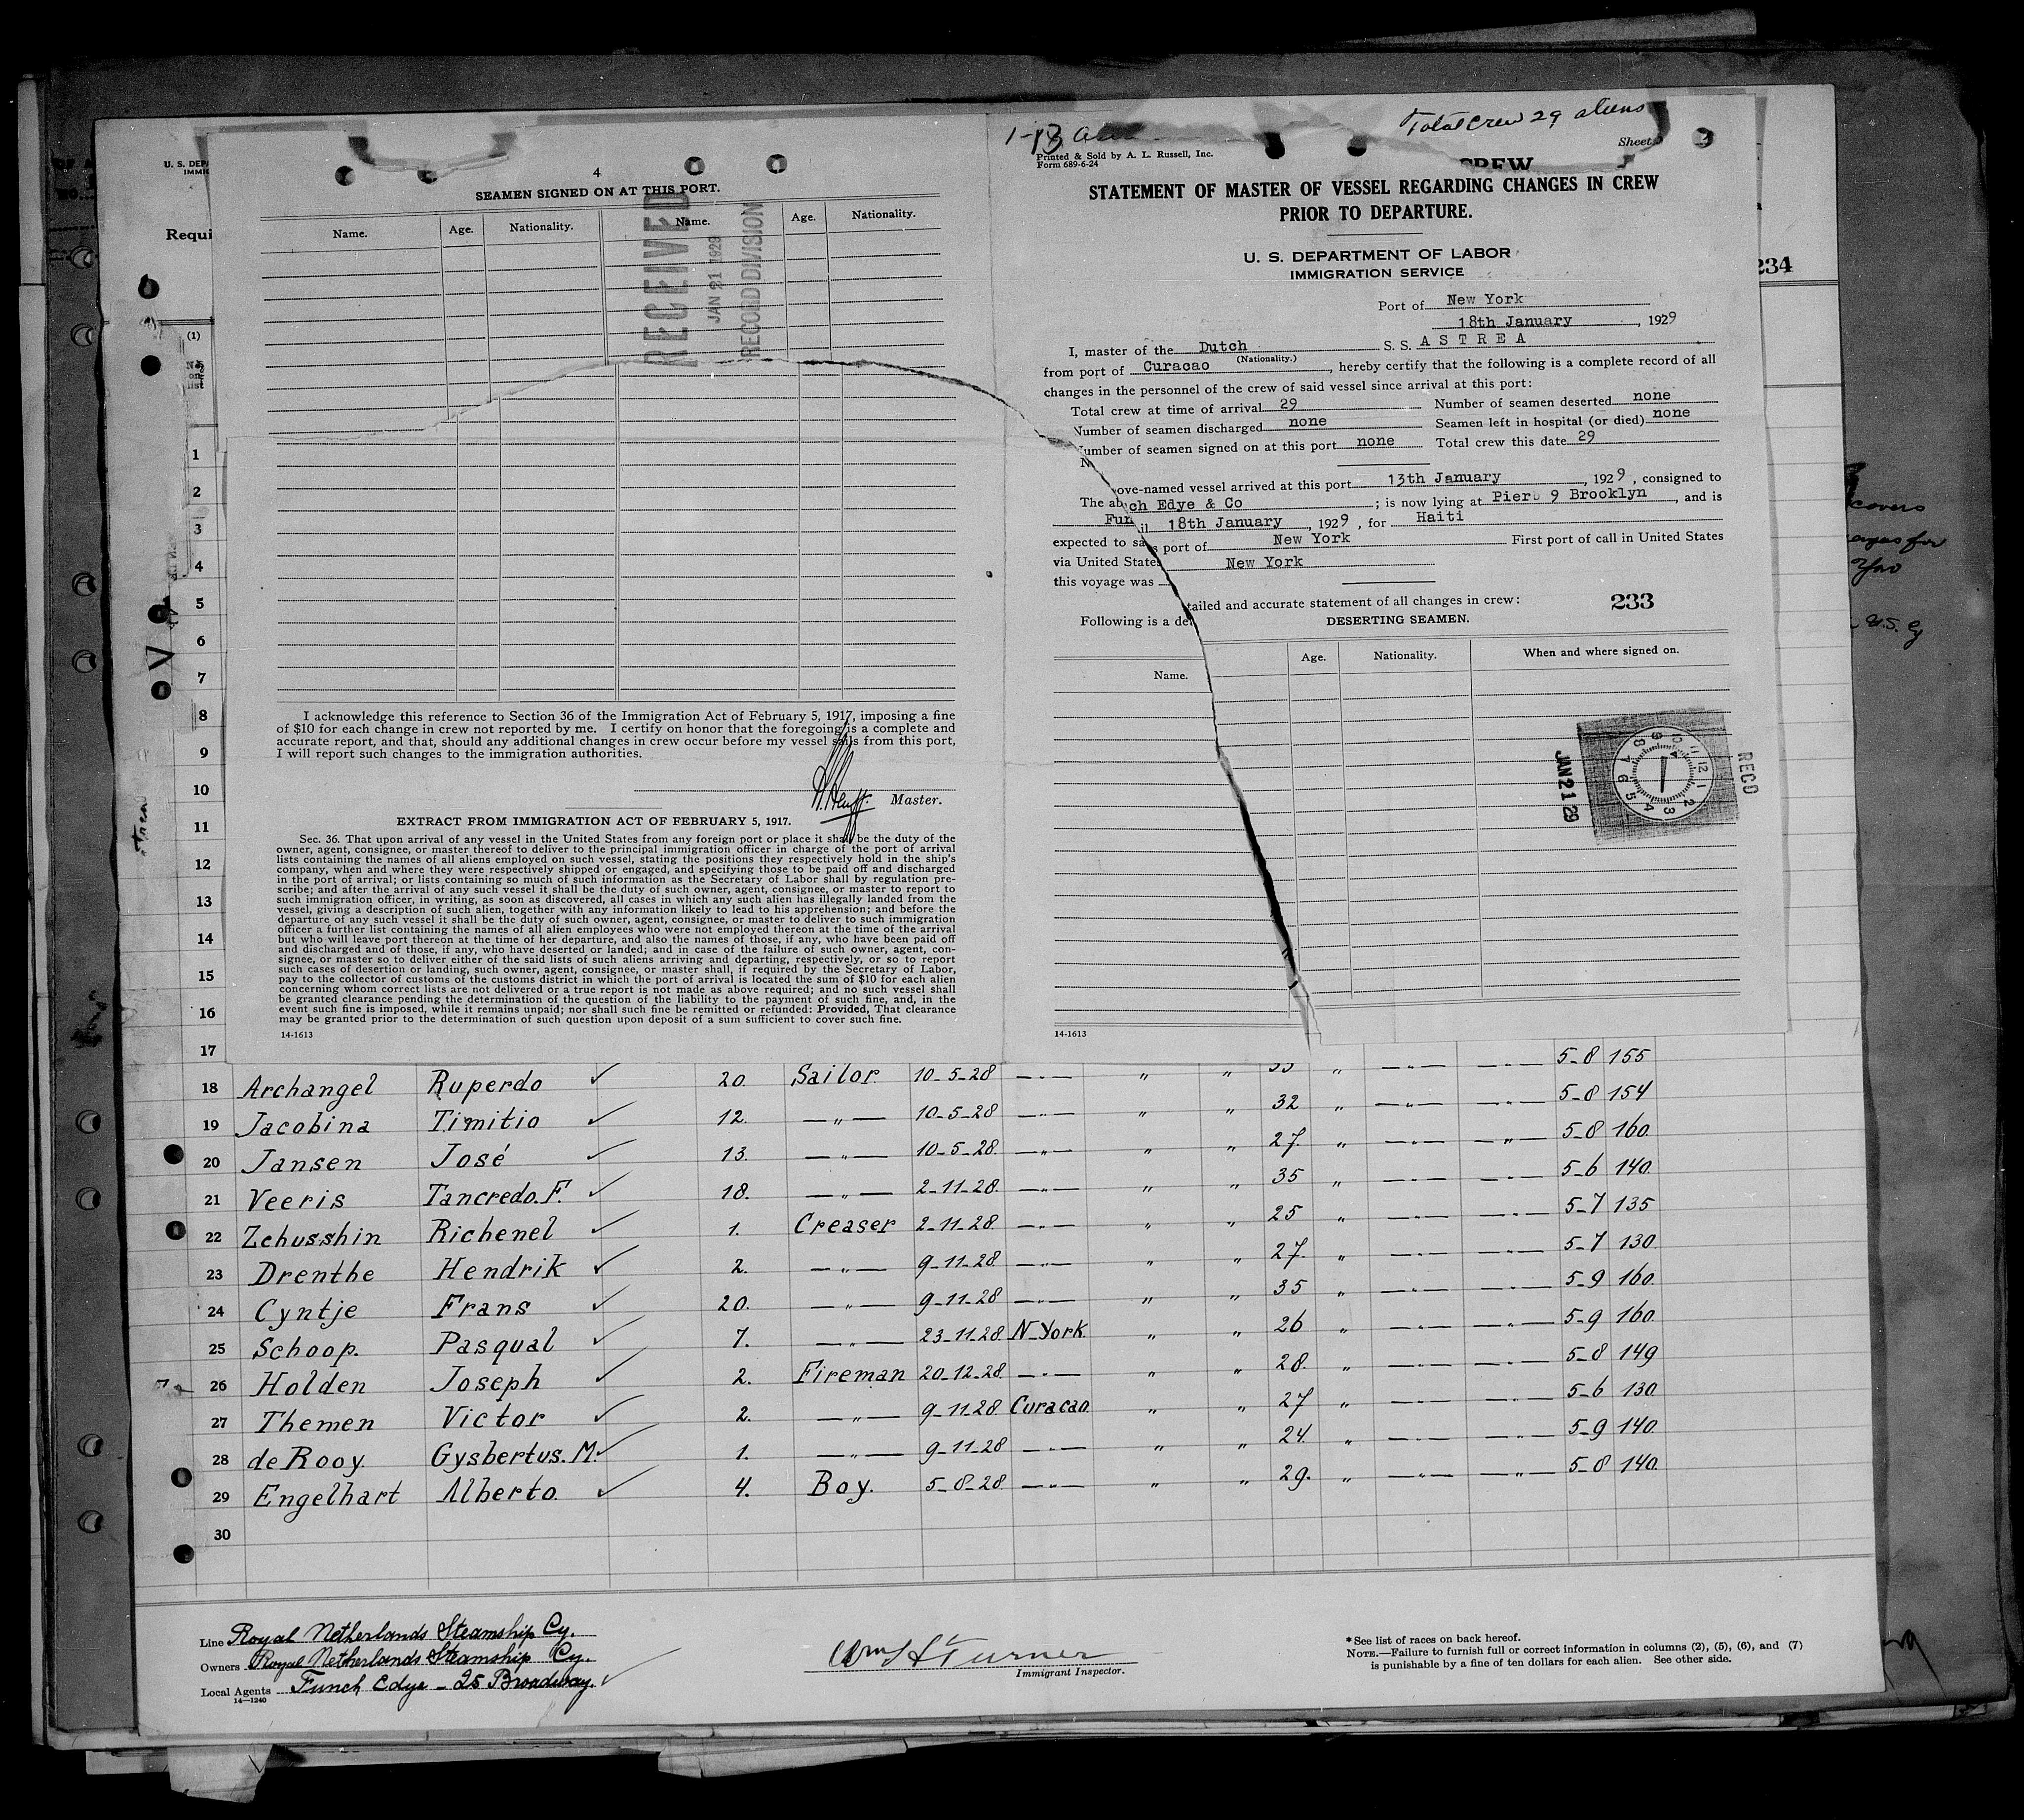 Total crew 29 aliens
Sheet
Printed & Sold by A. L. Russell, Inc.
Form 689-6-24
CREW
STATEMENT OF MASTER OF VESSEL REGARDING CHANGES IN CREW
PRIOR TO DEPARTURE.
U. S. DEPARTMENT OF LABOR
IMMIGRATION SERVICE
Port of New York
18th January, 1929
I, master of the Dutch S. S. ASTREA
(Nationality.)
from port of Curacao, hereby certify that the following is a complete record of all
changes in the personnel of the crew of said vessel since arrival at this port:
Total crew at time of arrival 29 Number of seamen deserted none
Number of seamen discharged none Seamen left in hospital (or died) none
Number of seamen signed on at this port none Total crew this date 29
The ab ove-named vessel arrived at this port 13th January, 1929, consigned to
Fun ch Edye & Co ; is now lying at Pier 9 Brooklyn, and is
expected to sa il 18th January, 1929, for Haiti
via United States port of New York First port of call in United States
this voyage was New York
Following is a de tailed and accurate statement of all changes in crew:
233
DESERTING SEAMEN.
Name. Age. Nationality. When and where signed on.
JAN 21 29
RECD
14-1613
4
SEAMEN SIGNED ON AT THIS PORT.
Name. Age. Nationality. Name. Age. Nationality.
RECEIVED
JAN 21 1929
RECORD DIVISION
I acknowledge this reference to Section 36 of the Immigration Act of February 5, 1917, imposing a fine
of $10 for each change in crew not reported by me. I certify on honor that the foregoing is a complete and
accurate report, and that, should any additional changes in crew occur before my vessel sails from this port,
I will report such changes to the immigration authorities.
Master.
EXTRACT FROM IMMIGRATION ACT OF FEBRUARY 5, 1917.
Sec. 36. That upon arrival of any vessel in the United States from any foreign port or place it shall be the duty of the
owner, agent, consignee, or master thereof to deliver to the principal immigration officer in charge of the port of arrival
lists containing the names of all aliens employed on such vessel, stating the positions they respectively hold in the ship's
company, when and where they were respectively shipped or engaged, and specifying those to be paid off and discharged
in the port of arrival; or lists containing so much of such information as the Secretary of Labor shall by regulation pre-
scribe; and after the arrival of any such vessel it shall be the duty of such owner, agent, consignee, or master to report to
such immigration officer, in writing, as soon as discovered, all cases in which any such alien has illegally landed from the
vessel, giving a description of such alien, together with any information likely to lead to his apprehension; and before the
departure of any such vessel it shall be the duty of such owner, agent, consignee, or master to deliver to such immigration
officer a further list containing the names of all alien employees who were not employed thereon at the time of the arrival
but who will leave port thereon at the time of her departure, and also the names of those, if any, who have been paid off
and discharged and of those, if any, who have deserted or landed; and in case of the failure of such owner, agent, con-
signee, or master so to deliver either of the said lists of such aliens arriving and departing, respectively, or so to report
such cases of desertion or landing, such owner, agent, consignee, or master shall, if required by the Secretary of Labor,
pay to the collector of customs of the customs district in which the port of arrival is located the sum of $10 for each alien
concerning whom correct lists are not delivered or a true report is not made as above required; and no such vessel shall
be granted clearance pending the determination of the question of the liability to the payment of such fine, and, in the
event such fine is imposed, while it remains unpaid; nor shall such fine be remitted or refunded: Provided, That clearance
may be granted prior to the determination of such question upon deposit of a sum sufficient to cover such fine.
14-1613
234
U. S. DEP
IMMIG
Requi
(1)
No.
on
list
1
2
3
4
5
6
7
8
9
10
11
12
13
14
15
16
17 5-8 155
18 Archangel Ruperdo ✓ 20. Sailor 10-5-28 —"— " " 33 " —"— —"— 5-8 154
19 Jacobina Timitio ✓ 12. —"— 10-5-28 —"— " " 32 " —"— —"— 5-8 160.
20 Jansen José ✓ 13. —"— 10-5-28. —"— " " 27. " —"— —"— 5-6 140.
21 Veeris Tancredo. F. ✓ 18. —"— 2-11-28. —"— " " 35 " —"— —"— 5-7 135
22 Zehusshin Richenel ✓ 1. Creaser 2-11-28. —"— " " 25 " —"— —"— 5-7 130.
23 Drenthe Hendrik ✓ 2. —"— 9-11-28. —"— " " 27. " —"— —"— 5-9 160.
24 Cyntje Frans ✓ 20. —"— 9-11-28 —"— " " 35 " —"— —"— 5-9 160.
25 Schoop. Pasqual ✓ 7. —"— 23-11-28. N-York. " " 26 " —"— —"— 5-8 149
26 Holden Joseph ✓ 2. Fireman 20-12-28. —"— " " 28. " —"— —"— 5-6 130.
27 Themen Victor ✓ 2. —"— 9-11-28. Curacao. " " 27 " —"— —"— 5-9 140.
28 de Rooy. Gysbertus. M. ✓ 1. —"— 9-11-28 —"— " " 24. " —"— —"— 5-8 140.
29 Engelhart Alberto. ✓ 4. Boy. 5-8-28. —"— " " 29. " —"— —"—
30
Line Royal Netherlands Steamship Cy.
Owners Royal Netherlands Steamship Cy.
Local Agents Funch Edye - 25 Broadway. ✓
14-1240
Wm H Turner
Immigrant Inspector.
* See list of races on back hereof.
NOTE.—Failure to furnish full or correct information in columns (2), (5), (6), and (7)
is punishable by a fine of ten dollars for each alien. See other side.
covers
for
U.S.